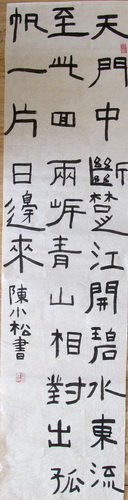 天門中斷楚江開碧水東流
至此回兩岸青山相對出孤
帆一片日邊來陳小松書